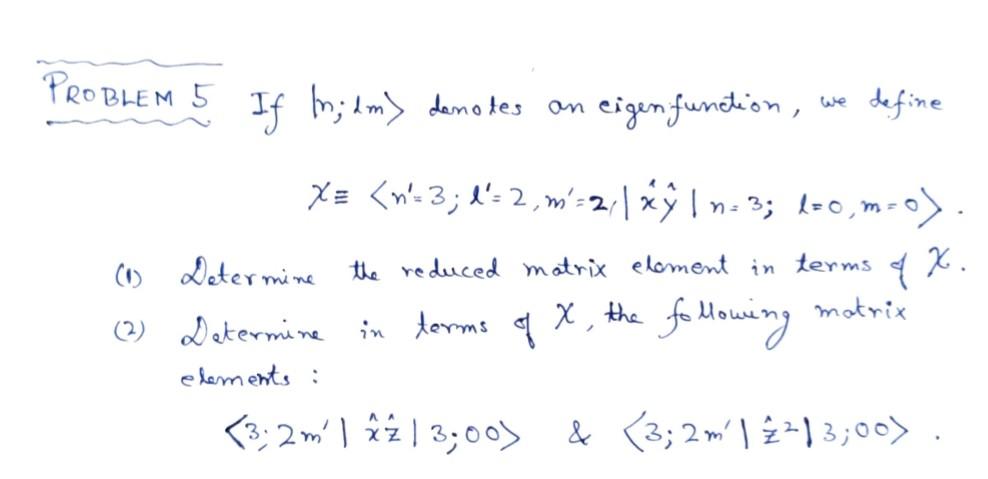 PROBLEM 5 If |n; lm> denotes an eigenfunction, we define
X ≡ <n'=3; l'=2, m'=2,| x̂ŷ | n=3; l=0, m=0>.
(1) Determine the reduced matrix element in terms of X.
(2) Determine in terms of X, the following matrix
elements :
<3; 2m'| x̂ẑ | 3;00> & <3; 2m'| ẑ² | 3;00> .